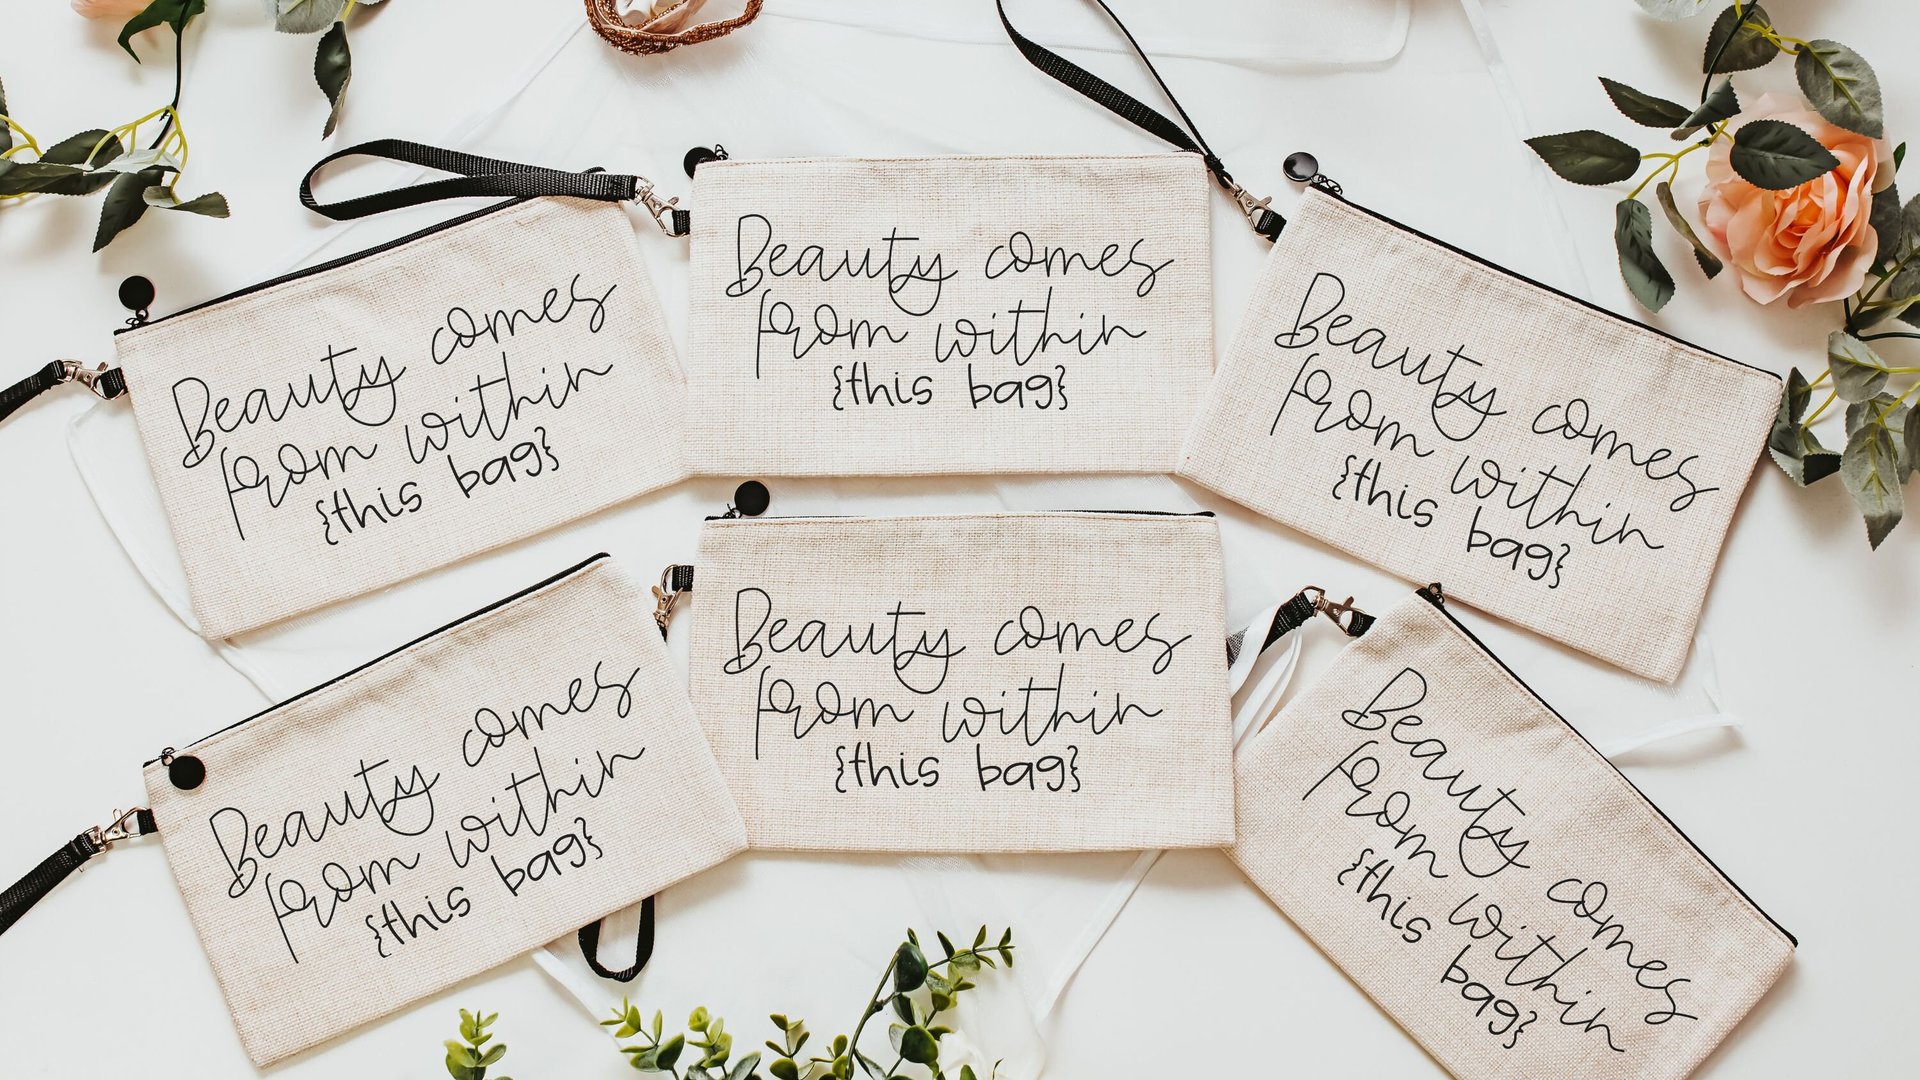 Beauty comes
from within
{this bag}
Beauty comes
from within
{this bag}
Beauty comes
from within
{this bag}
Beauty comes
from within
{this bag}
Beauty comes
from within
{this bag}
Beauty comes
from within
{this bag}